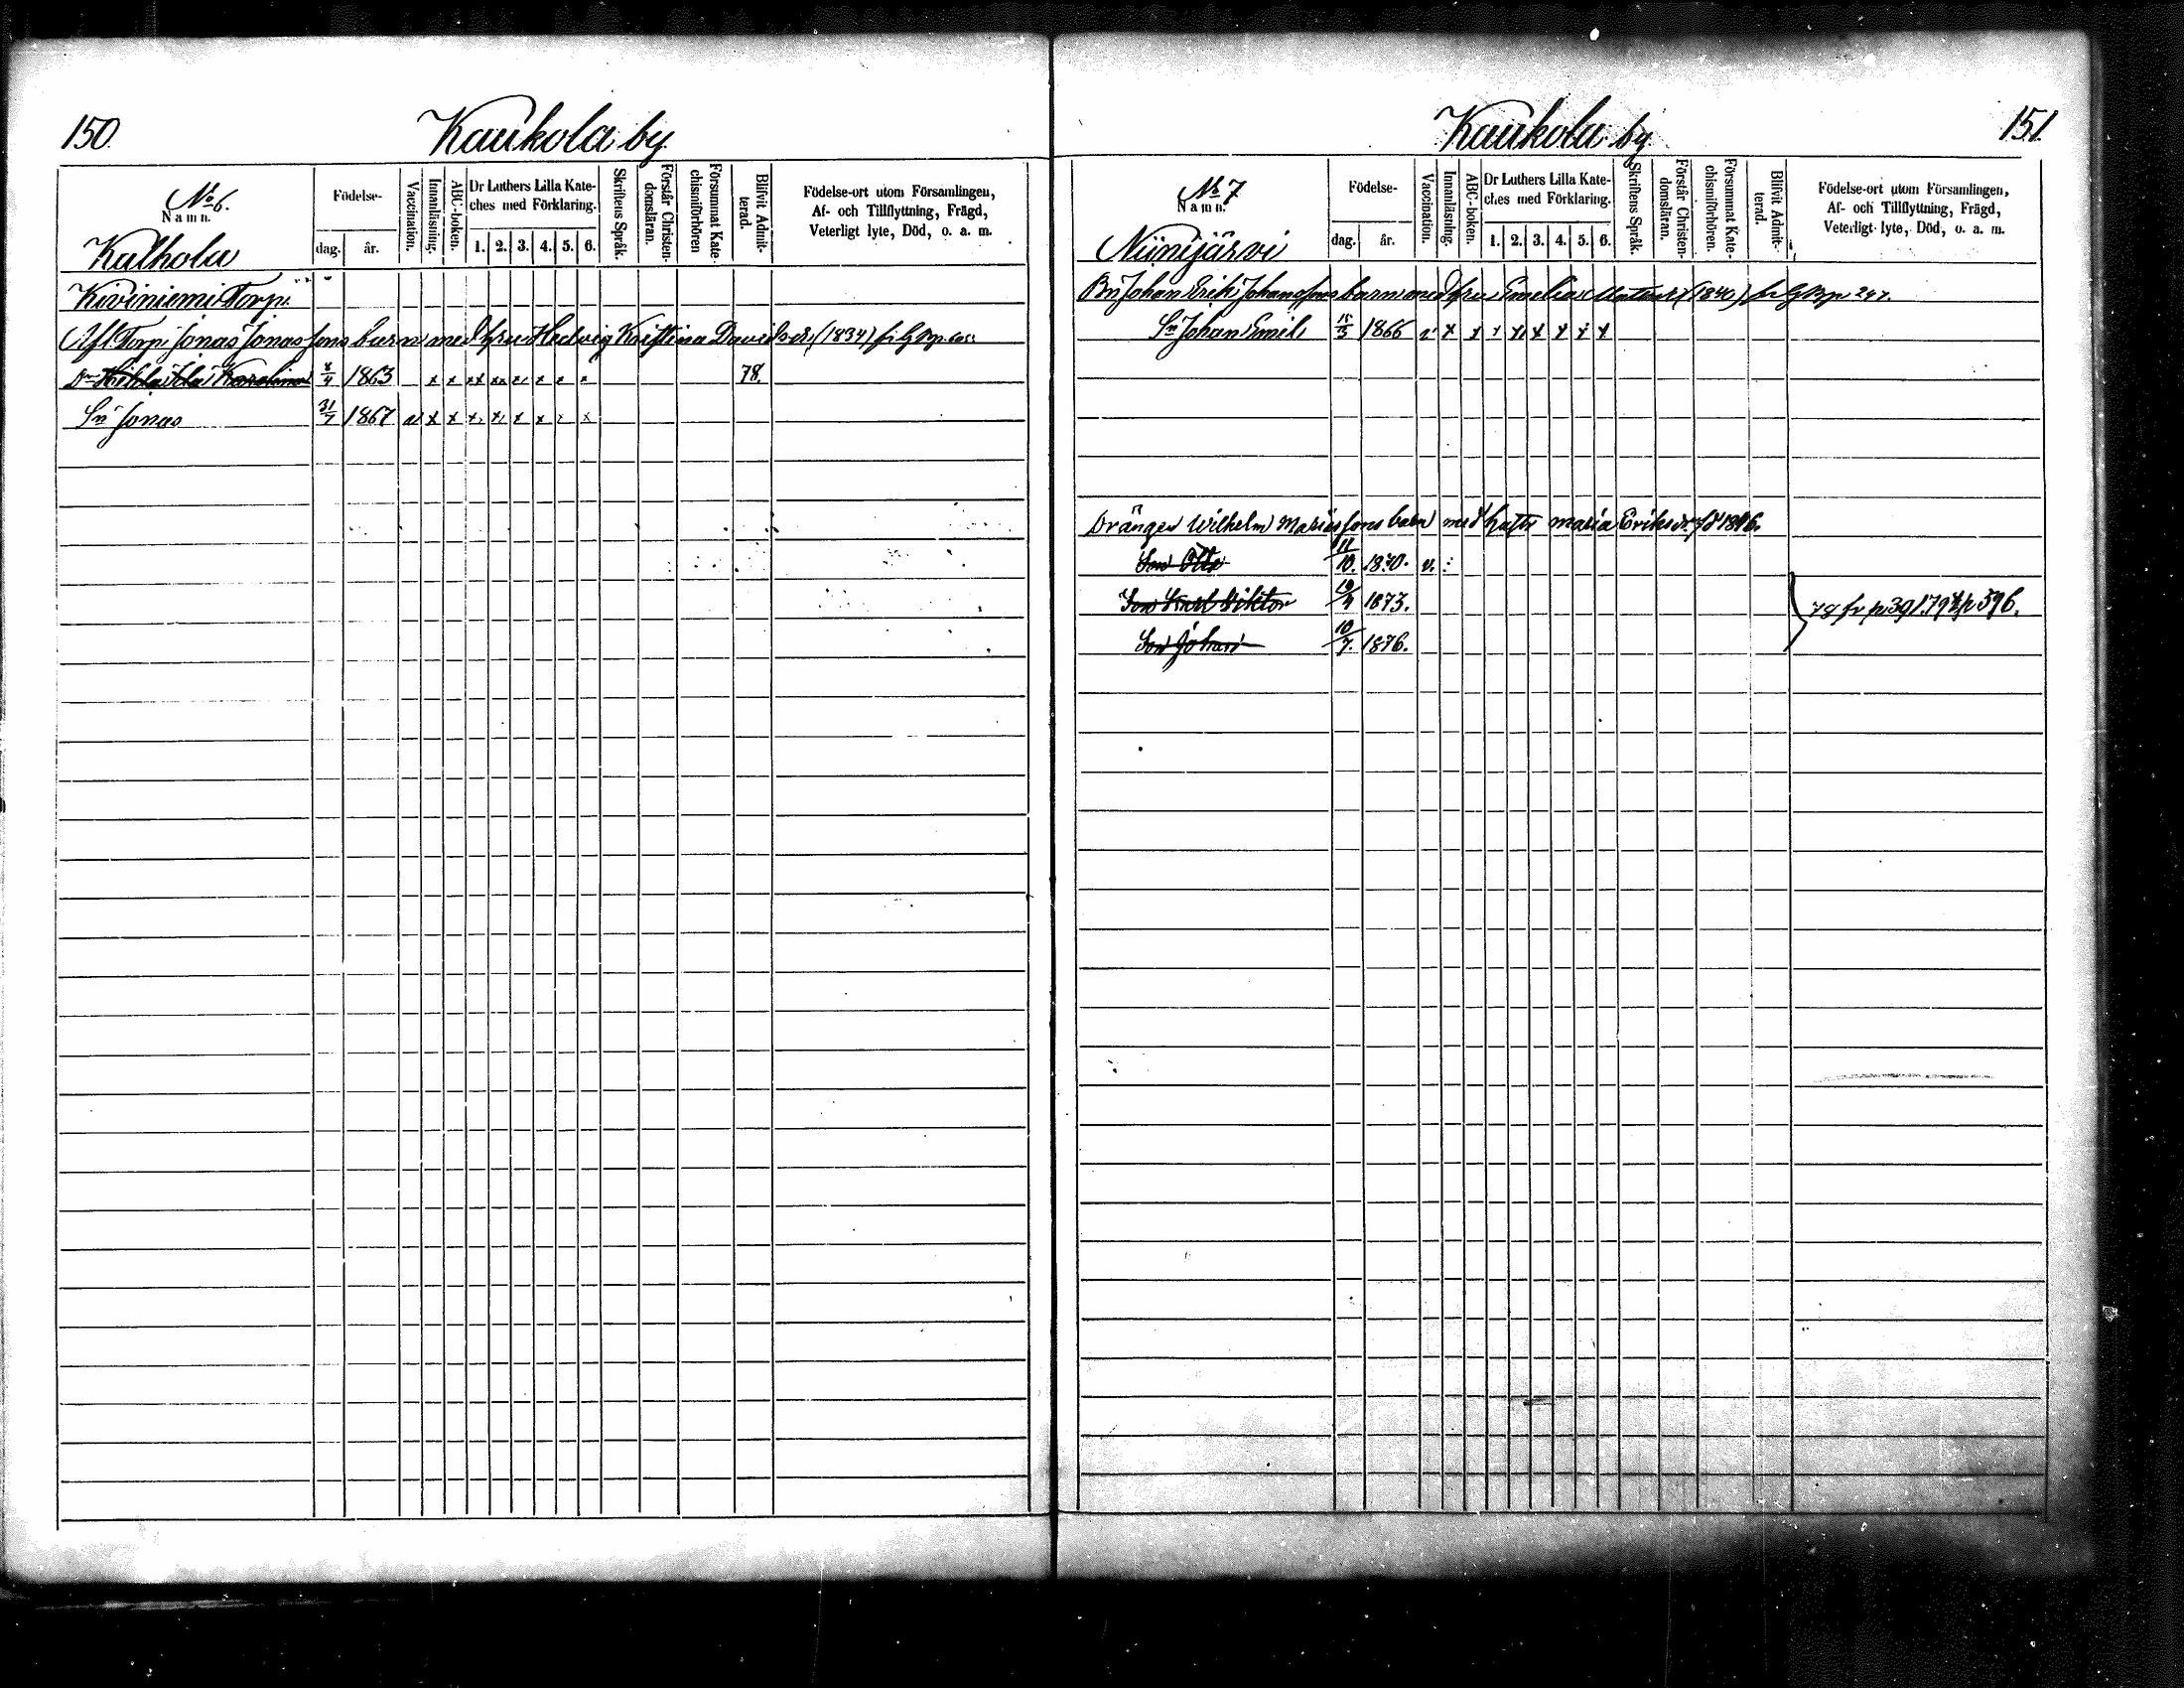 150.
Kaukola by
No 6.
Namn.
Kalhola
Födelse-
dag.
år.
Vaccination.
Innanläsning.
ABC-boken.
Dr Luthers Lilla Kate-
ches med Förklaring.
1. 2. 3. 4. 5. 6.
Skriftens Språk.
Förstår Christen-
domsläran.
Försummat Kate-
chismiförhören
Blifvit Admit-
terad.
Födelse-ort utom Församlingen,
Af- och Tillflyttning, Frägd,
Veterligt lyte, Död, o. a. m.
Kiviniemi Torp.
Afl. Torp. Jonas Jonassons barn med hru Hedvig Kristina Davidsdr. (1834)
Dr Karolina 8/4 1863 x x xx xx x x x x 78.
Sn Jonas 31/7 1867 v x x x x x x x x
151.
Kaukola by
No 7
Namn.
Niinijärvi
Födelse-
dag.
år.
Vaccination.
Innanläsning.
ABC-boken.
Dr Luthers Lilla Kate-
ches med Förklaring.
1. 2. 3. 4. 5. 6.
Skriftens Språk.
Förstår Christen-
domsläran.
Försummat Kate-
chismiförhören.
Blifvit Admit-
terad.
Födelse-ort utom Församlingen,
Af- och Tillflyttning, Frägd,
Veterligt lyte, Död, o. a. m.
Bn Johan Erik Johanssons barn med hru Emelia Mattsdr (1840) 247.
Sn Johan Emil 15/3 1866 v x x x x x x x x
Drängen Wilhelm Mariessons barn med hustr maria Eriksdr. fd 1846.
Son Otto 11/10. 1870. v.
Son Karl Viktor 12/4 1873. 78 fr p 391. 79 t. p 596.
Son Johan 10/7. 1876.